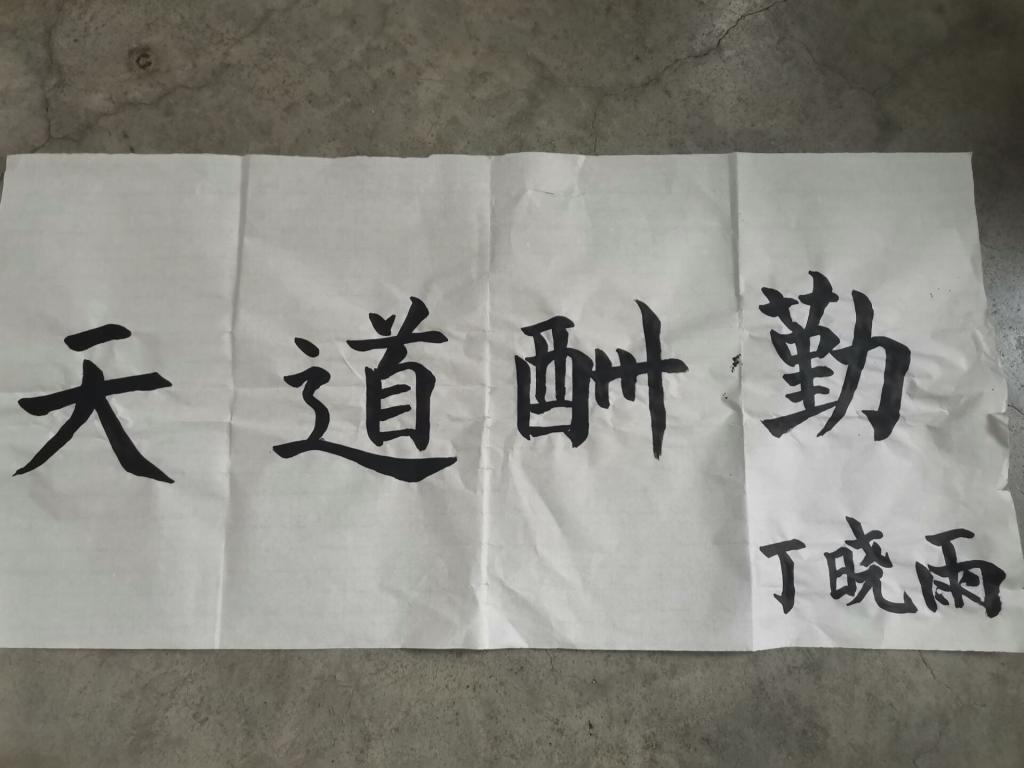 天道酬勤
丁晓雨